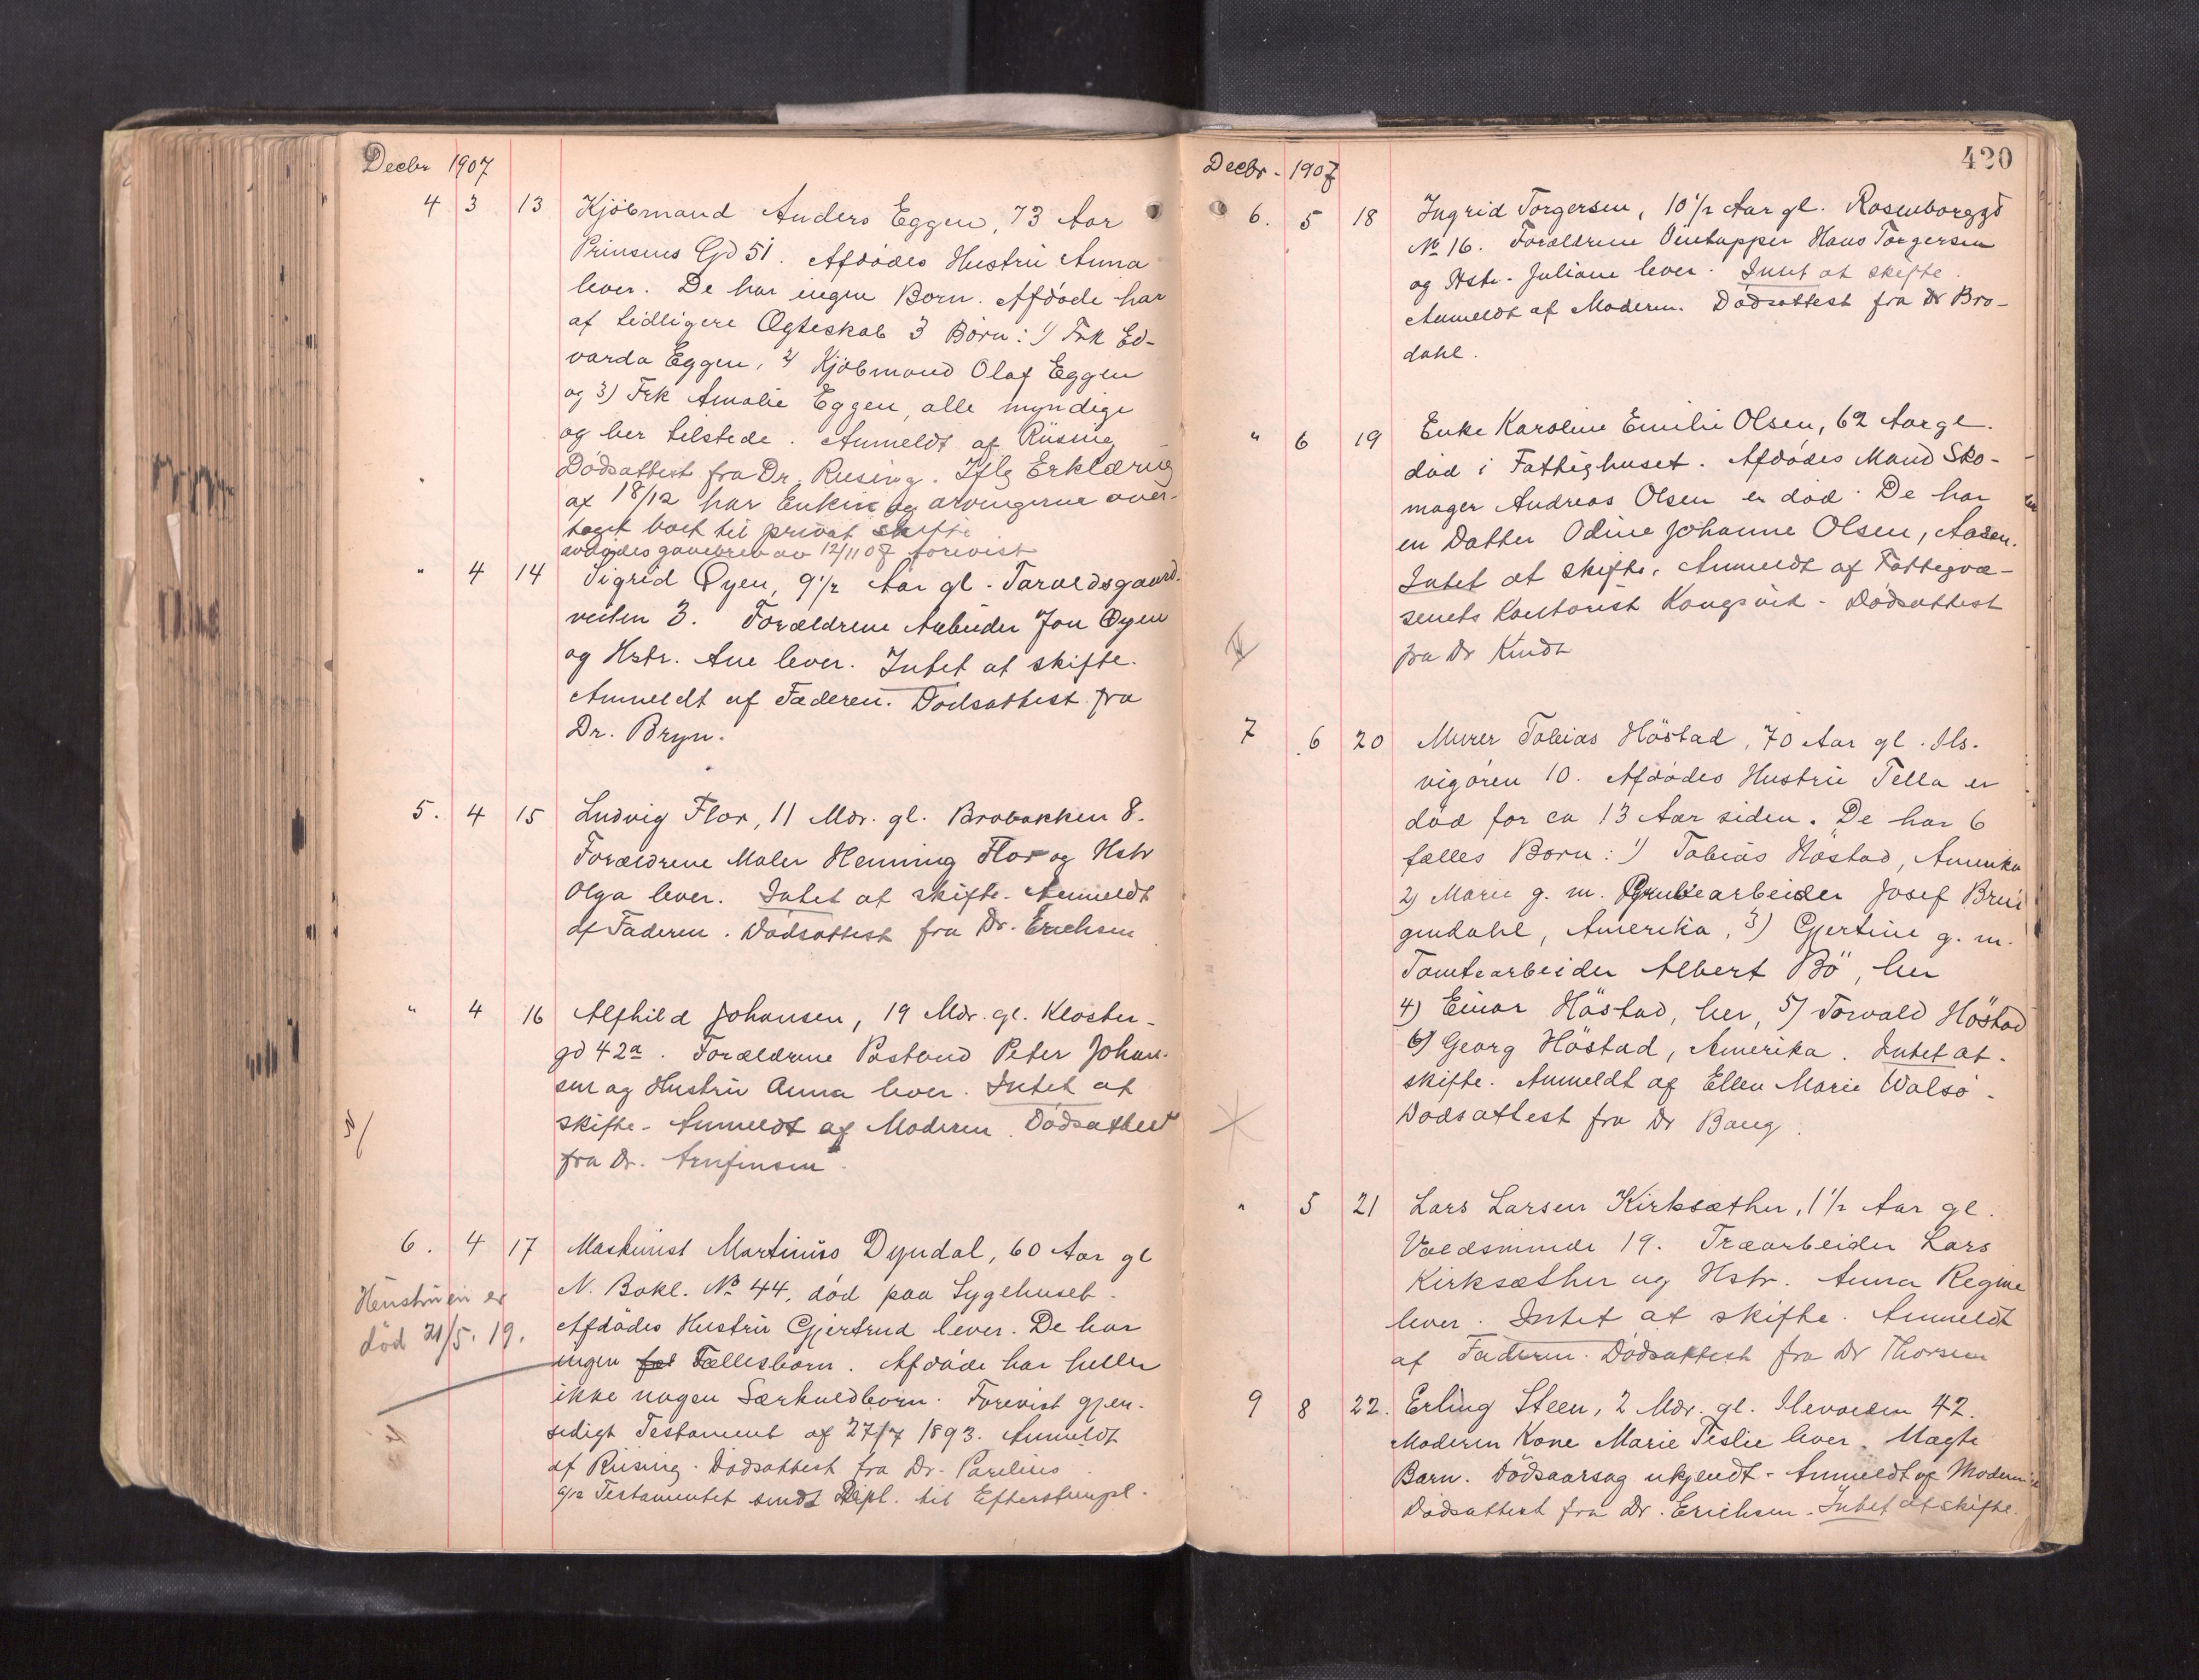 Decbr 1907
4 3 13 Kjöbmand Anders Eggen, 73 Aar
Prinsens Gd 51. Afdödes Hustru Anna
lever. De har ingen Börn. Afdöde har
af tidligere Ægteskab 3 Börn: 1) Frk Ed-
varda Eggen, 2) Kjöbmand Olaf Eggen
og 3) Frk Amalie Eggen, alle myndige
og her tilstede. Anmeldt af Riising
Dödsattest fra Dr. Riising. Iflg Erklæring
af 18/12 har Enken og arvingerne over-
taget boet til privat skifte
gavebrev av 12/11 07 forevist
" 4 14 Sigrid Öyen, 9 1/2 Aar gl. Taraldsgaard-
veiten 3. Forældrene Arbeider Jon Öyen
og Hstr. Ane lever. Intet at skifte.
Anmeldt af Faderen. Dödsattest fra
Dr. Bryn.
5. 4 15 Ludvig Flor, 11 Mdr. gl. Brobakken 8.
Forældrene Maler Henning Flor og Hstr
Olga lever. Intet at skifte. Anmeldt
af Faderen. Dödsattest fra Dr. Erichsen
" 4 16 Alfhild Johansen, 19 Mdr. gl. Kloster-
gd 42a. Forældrene Postbud Peter Johan-
sen og Hustru Anna lever. Intet at
skifte. Anmeldt af Moderen. Dödsattest
fra Dr. Arnfinsen.
6. 4 17 Maskinist Martinus Dyndal, 60 Aar gl
N. Bakl. No 44, död paa Sygehuset.
Hustruen er
död 21/5. 19.
Afdödes Hustru Gjertrud lever. De har
ingen fæl Fællesbörn. Afdöde har heller
ikke nogen Særkuldbörn. Forevist gjen-
sidigt Testament af 27/7 1893. Anmeldt
af Riising. Dödsattest fra Dr. Parelius
6/12 Testamentet sendt Dept. til Efterstempl.
Decbr. 1907
420
6. 5 18 Ingrid Torgersen, 10 1/2 Aar gl. Rosenborggd
No 16. Forældrene Vintapper Hans Torgersen
og Hstr. Juliane lever. Intet at skifte.
Anmeldt af Moderen. Dödsattest fra Dr Bro-
dahl.
" 6 19 Enke Karoline Emilie Olsen, 62 Aar gl.
död i Fattighuset. Afdödes Mand Sko-
mager Andreas Olsen er död. De har
en Datter Odine Johanne Olsen, Aasen.
Intet at skifte. Anmeldt af Fattigvæ-
senets Kontorist Kongsvik. Dödsattest
fra Dr Kindt
7 6 20 Murer Tobias Höstad, 70 Aar gl. Ils-
vigören 10. Afdödes Hustru Tella er
död for ca 13 Aar siden. De har 6
fælles Börn: 1) Tobias Höstad, Amerika
2) Marie g. m. Grubearbeider Josef Brui
gendahl, Amerika, 3) Gjertine g. m.
Tomtearbeider Albert Bö, her
4) Einar Höstad, her, 5) Torvald Höstad
6) Georg Höstad, Amerika. Intet at
skifte. Anmeldt af Ellen Marie Walsö.
Dödsattest fra Dr Bang.
" 5 21 Lars Larsen Kirksæther, 1 1/2 Aar gl.
Voldsminde 19. Træarbeider Lars
Kirksæther og Hstr. Anna Regine
lever. Intet at skifte. Anmeldt
af Faderen. Dödsattest fra Dr Thorsen
9 8 22. Erling Steen, 2 Mdr. gl. Ilevolden 42.
Moderen Kone Marie Teslie lever. Uægte
Barn. Dödsaarsag ukjendt. Anmeldt af Moderen
Dödsattest fra Dr. Erichsen. Intet at skifte.